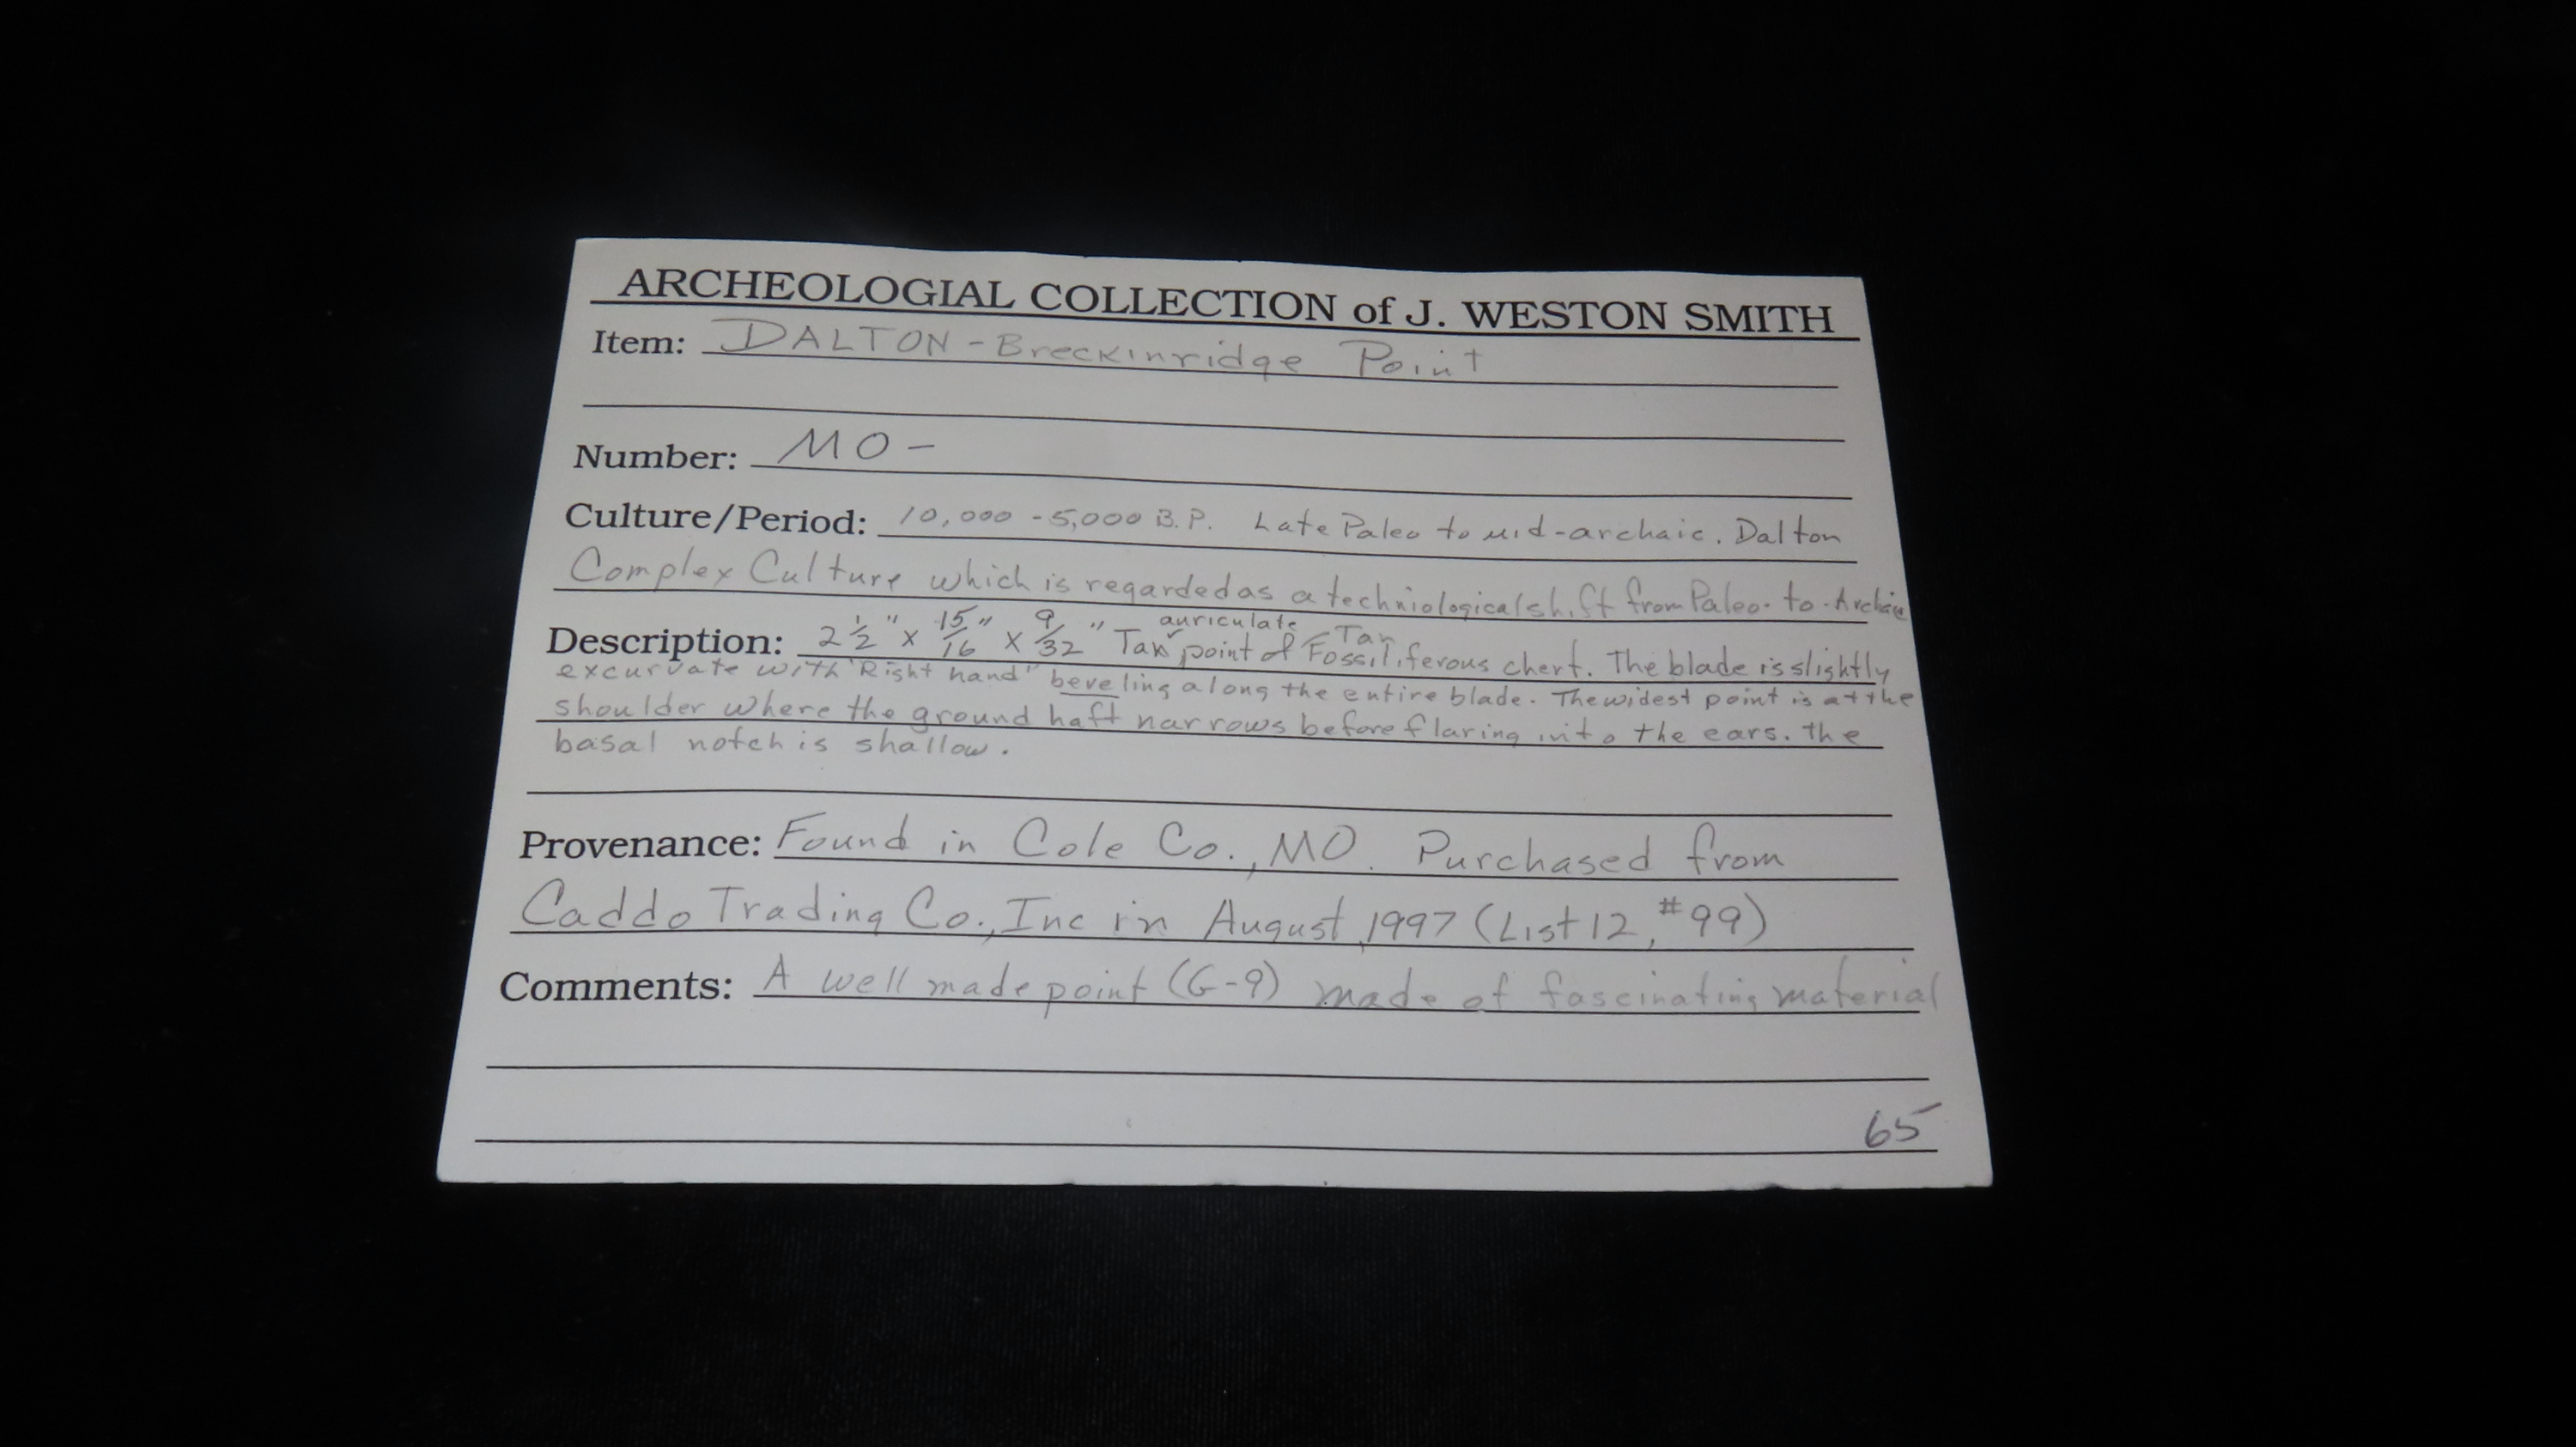 ARCHEOLOGIAL COLLECTION of J. WESTON SMITH
Item: DALTON - Breckinridge Point
Number: MO -
Culture/Period: 10,000 - 5,000 B.P. Late Paleo to mid-archaic. Dalton
Complex Culture which is regarded as a techniological shift from Paleo- to - Archaic
Description: 2 1/2" x 15/16" x 9/32" Tan auriculate point of Tan Fossiliferous chert. The blade is slightly
excurvate with "Right hand" beveling along the entire blade. The widest point is at the
shoulder where the ground haft narrows before flaring into the ears. the
basal notch is shallow.
Provenance: Found in Cole Co., MO. Purchased from
Caddo Trading Co., Inc in August, 1997 (List 12, #99)
Comments: A well made point (G-9) made of fascinating material
65